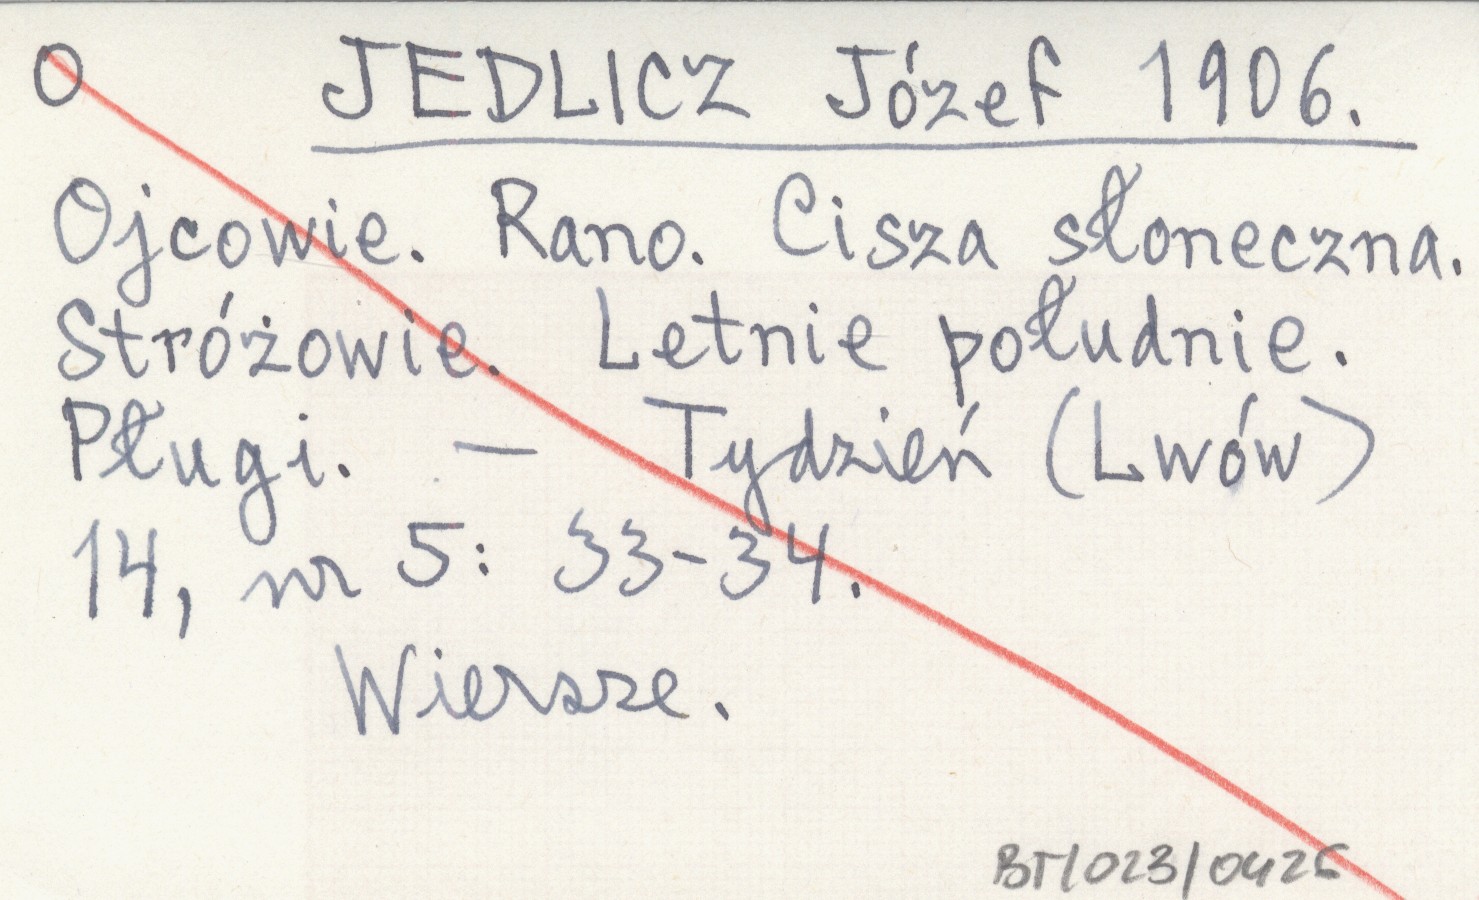 O JEDLICZ Józef 1906.
Ojcowie. Rano. Cisza słoneczna.
Stróżowie. Letnie południe.
Pługi. — Tydzień (Lwów)
14, nr 5: 33-34.
Wiersze.
BT/023/0426